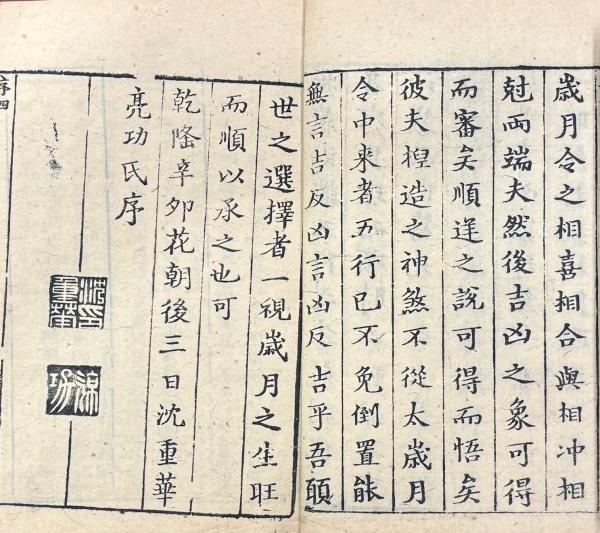 歲月令之相喜相合與相冲相
尅兩端夫然後吉凶之象可得
而審矣順逆之說可得而悟矣
彼夫揑造之神煞不從太歲月
令中来者五行已不免倒置能
無言吉反凶言凶反吉乎吾願
世之選擇者一視歲月之生旺
而順以承之也可
乾隆辛卯花朝後三日沈重華
亮功氏序
沈重華印
亮功
序四